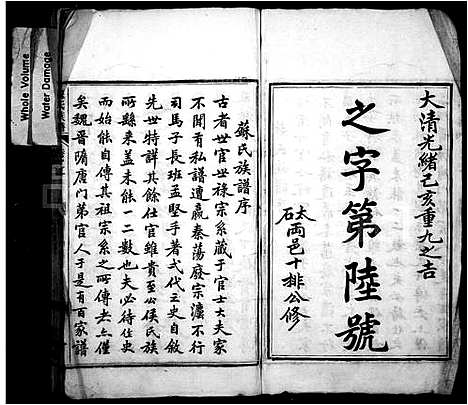 大清光緒己亥重九之吉
之字第陸號
太石兩邑十排公修
蘇氏族譜序
古者世官世祿宗系藏于官士大夫家
不聞有私譜遭嬴秦蕩廢宗瀆不行
司馬子長班孟堅手著式代之史自敘
先世特詳其餘仕官雖貴至公侯氏族
所縣来蓋未能一二數也夫必待仕史
而始能自傳其祖宗系之所傳去亦僅
矣魏晉隋唐門第官人于是有百家譜
Whole Volume
Water Damage